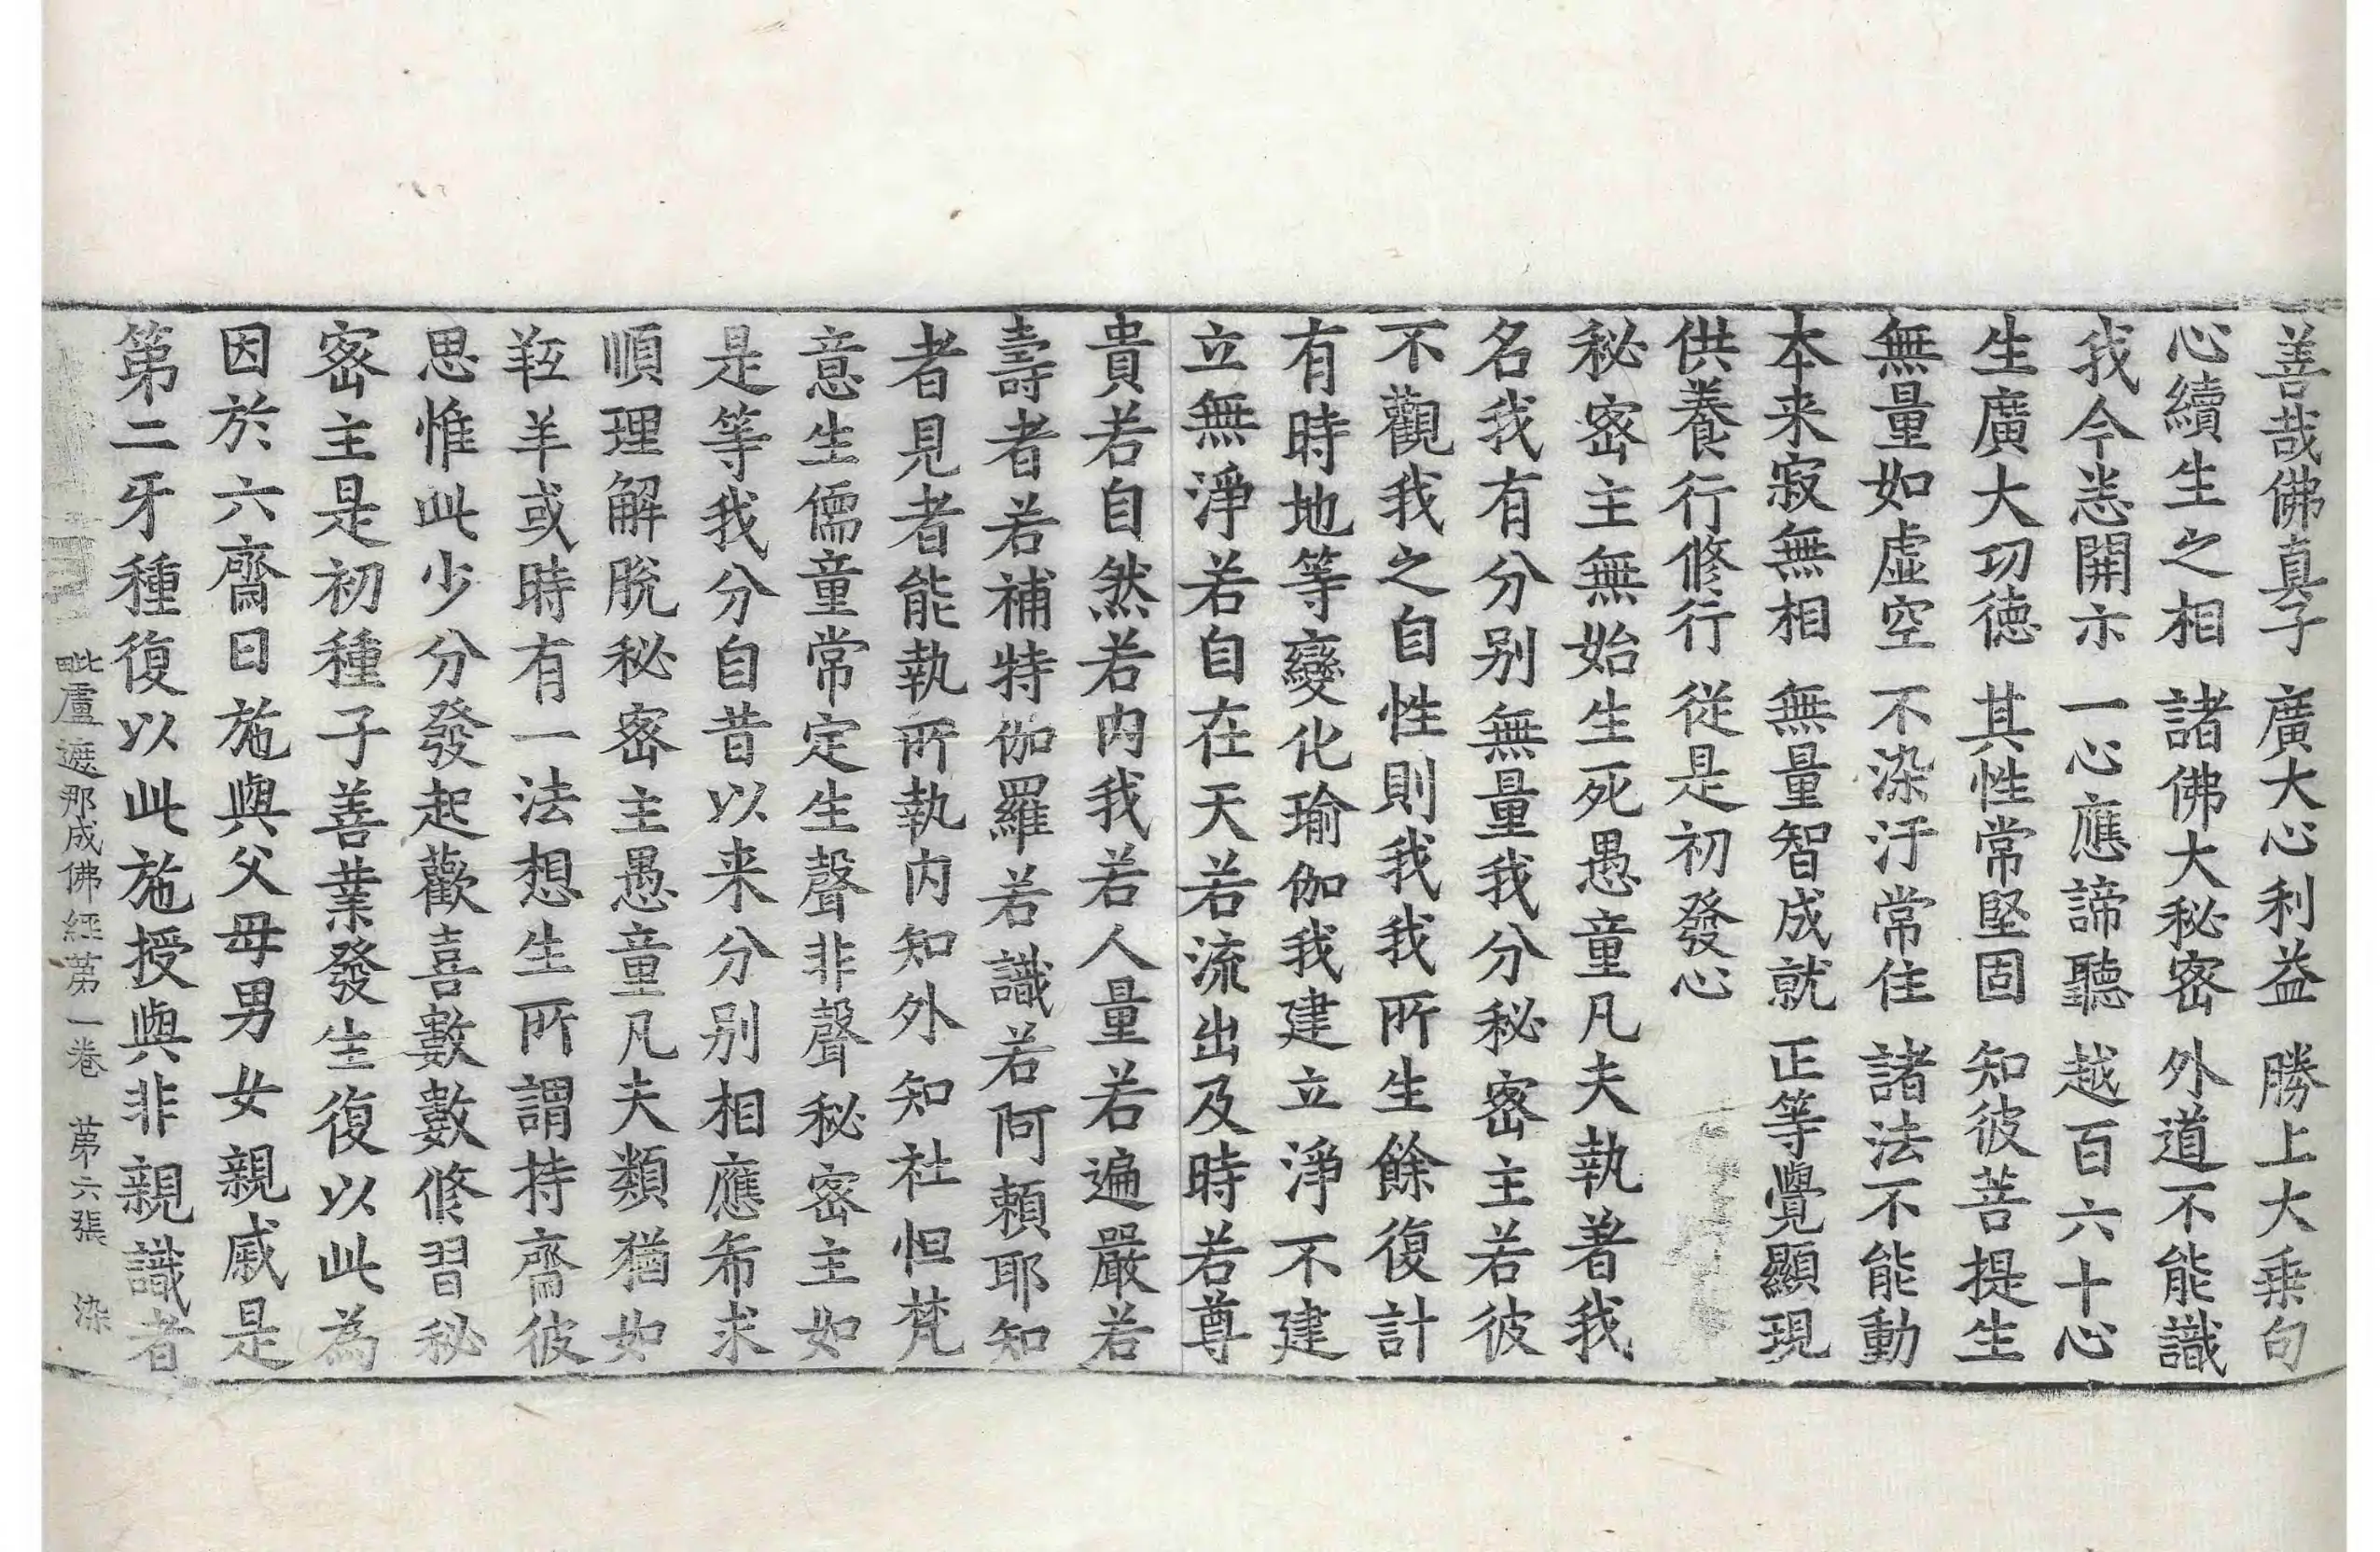 善哉佛真子　廣大心利益　勝上大乗句
心續生之相　諸佛大秘密　外道不能識
我今悉開示　一心應諦聽　越百六十心
生廣大功德　其性常堅固　知彼菩提生
無量如虛空　不染汙常住　諸法不能動
本来寂無相　無量智成就　正等覺顯現
供養行修行　從是初發心
秘密主無始生死愚童凡夫執著我
名我有分別無量我分秘密主若彼
不觀我之自性則我我所生餘復計
有時地等變化瑜伽我建立淨不建
立無淨若自在天若流出及時若尊
貴若自然若内我若人量若遍嚴若
壽者若補特伽羅若識若阿頼耶知
者見者能執所執内知外知社怛梵
意生儒童常定生聲非聲秘密主如
是等我分自昔以来分別相應希求
順理解脫秘密主愚童凡夫類猶如
羝羊或時有一法想生所謂持齋彼
思惟此少分發起歡喜數數修習秘
密主是初種子善業發生復以此為
因於六齋日施與父母男女親戚是
第二牙種復以此施授與非親識者
毗盧遮那成佛經第一卷　第六張　染